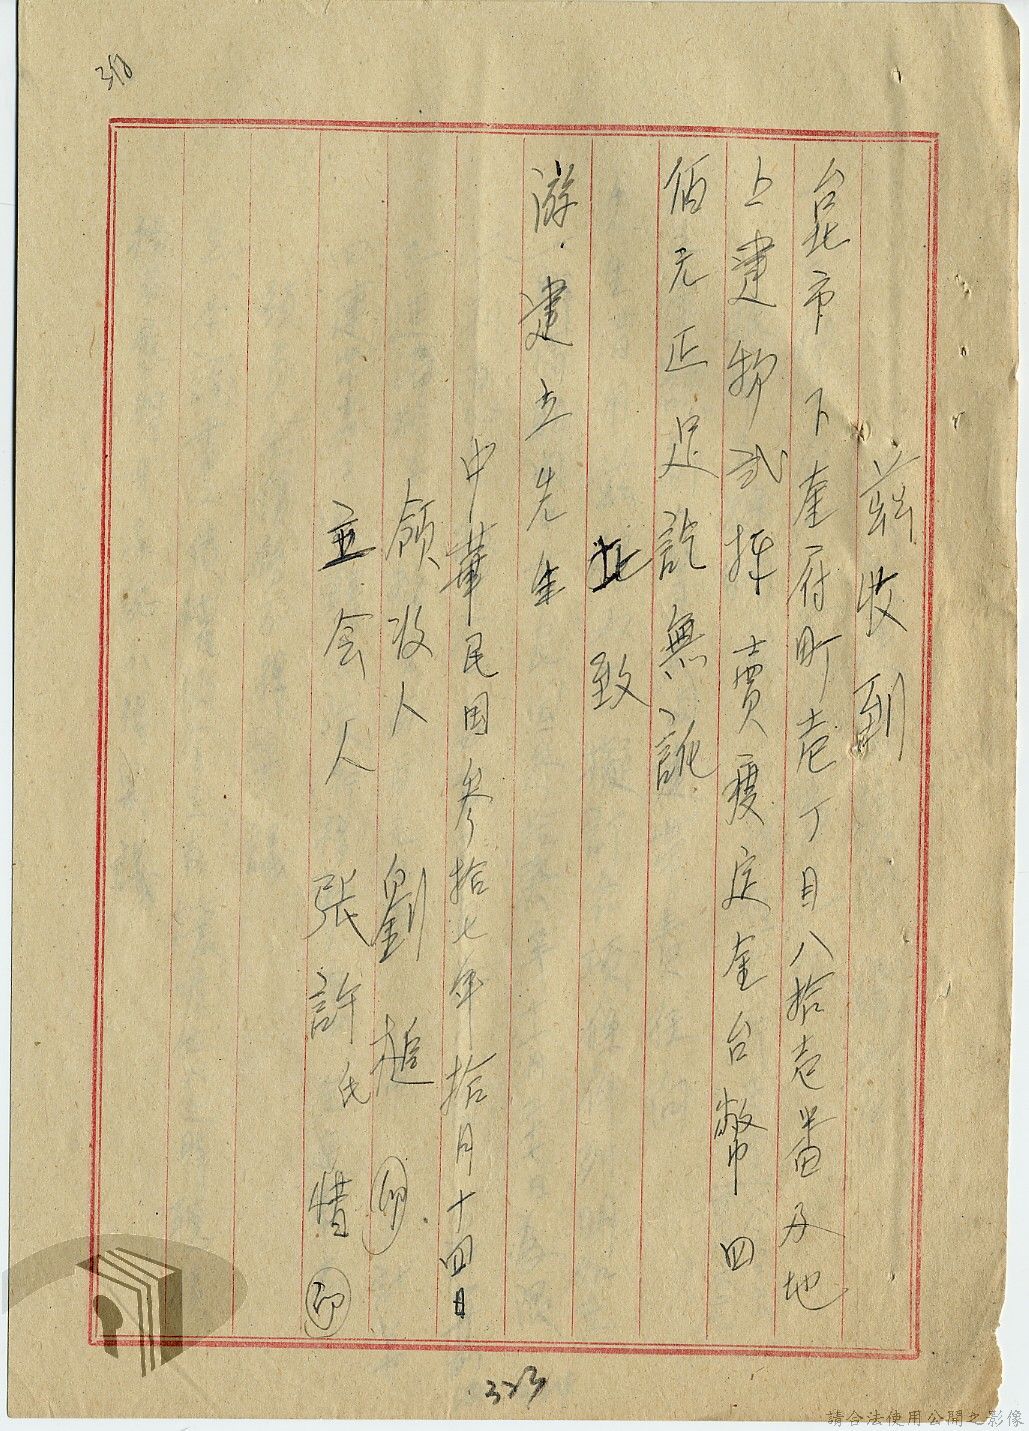 茲收到
台北市下奎府町壱丁目八拾壱番及地
上建物弍棟賣度定金台幣四
佰元正足訖無訛
此致
游建立先生
中華民国參拾七年拾月十四日
領收人 劉槌 印
立会人 張許氏惜 印
323
請合法使用公開之影像